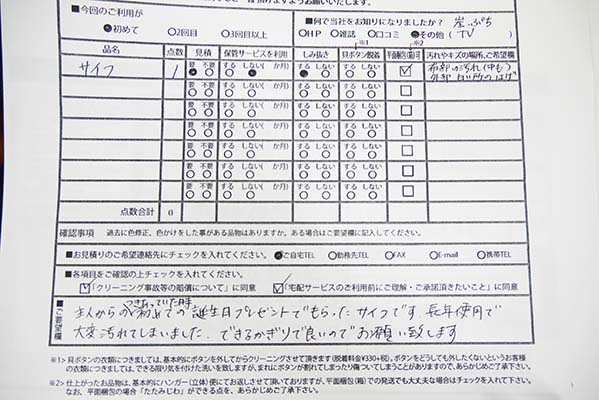 ■今回のご利用が
●初めて ○2回目 ○3回目以上
■何で当社をお知りになりましたか? 崖っぷち
○HP ○雑誌 ○口コミ ●その他( TV )
※1 ※2
品名 点数 見積 保管サービスを利用 しみ抜き 貝ボタン脱着 平面梱包(箱)可 汚れやキズの場所、ご要望欄
サイフ 1 要 不要 する しない( か月) する しない する しない ☑ 布部の汚れ(中も)
外部 白い所のはげ
要 不要 する しない( か月) する しない する しない □
要 不要 する しない( か月) する しない する しない □
要 不要 する しない( か月) する しない する しない □
要 不要 する しない( か月) する しない する しない □
要 不要 する しない( か月) する しない する しない □
要 不要 する しない( か月) する しない する しない □
点数合計 0
確認事項 過去に色修正、色かけをした事がある品物はありますか。ある場合はご要望欄に記入してください。
■お見積りのご希望連絡先にチェックを入れてください。 ●ご自宅TEL ○勤務先TEL ○FAX ○E-mail ○携帯TEL
■各項目をご確認の上チェックを入れてください。
☑「クリーニング事故等の賠償について」に同意 ☑「宅配サービスのご利用前にご理解・ご承諾頂きたいこと」に同意
■ご要望欄
つきあっていた時
主人からの初めての誕生日プレゼントでもらったサイフです。長年使用で
大変汚れてしまいました。できるかぎりで良いのでお願い致します
※1> 貝ボタンの衣類につきましては、基本的にボタンを外してからクリーニングさせて頂きます(脱着料金¥330+税)。ボタンをどうしても外したくないというお客様
の衣類につきましては、できる限り気を付けた洗いを致しますが、まれにボタンが割れてしまったり傷ついてしまうことがありますので、あらかじめご了承下さい。
※2> 仕上がったお品物は、基本的にハンガー(立体)便にてお返しさせて頂いておりますが、平面梱包(箱)での発送でも大丈夫な場合はチェックを入れて下さい。
なお、平面梱包の場合「たたみじわ」ができる点を、あらかじめご了承下さい。